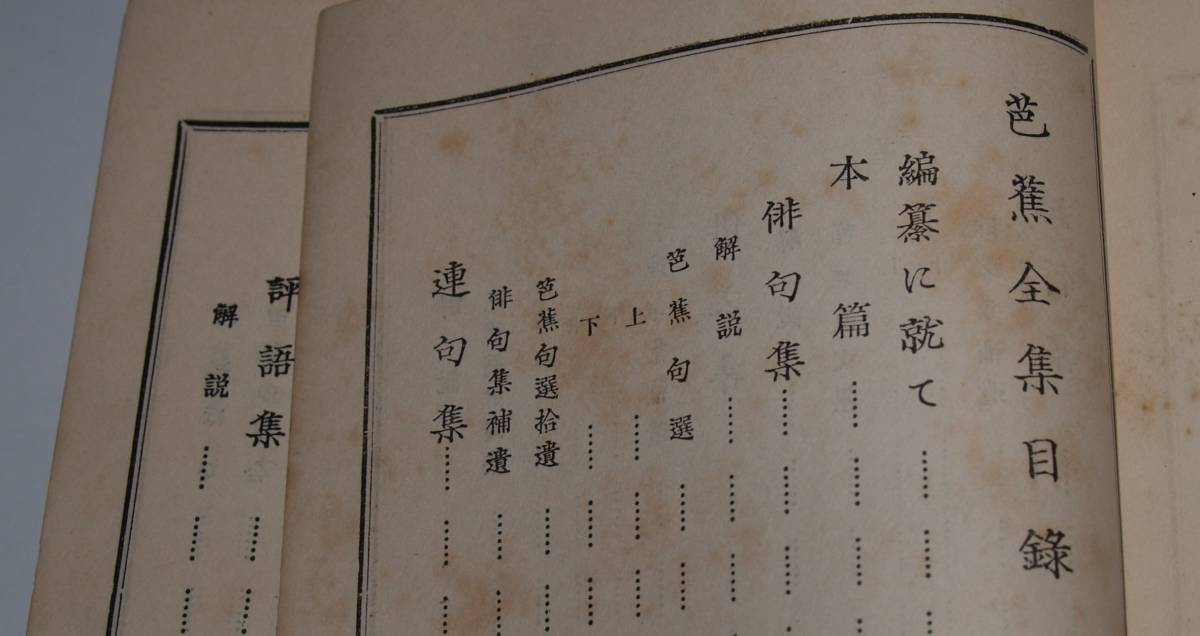 芭蕉全集目錄
編纂に就て……………
本篇……………
俳句集……………
解說……………
芭蕉句選……………
上……………
下……………
芭蕉句選拾遺……………
俳句集補遺……………
連句集……………
評語集……………
解說……………